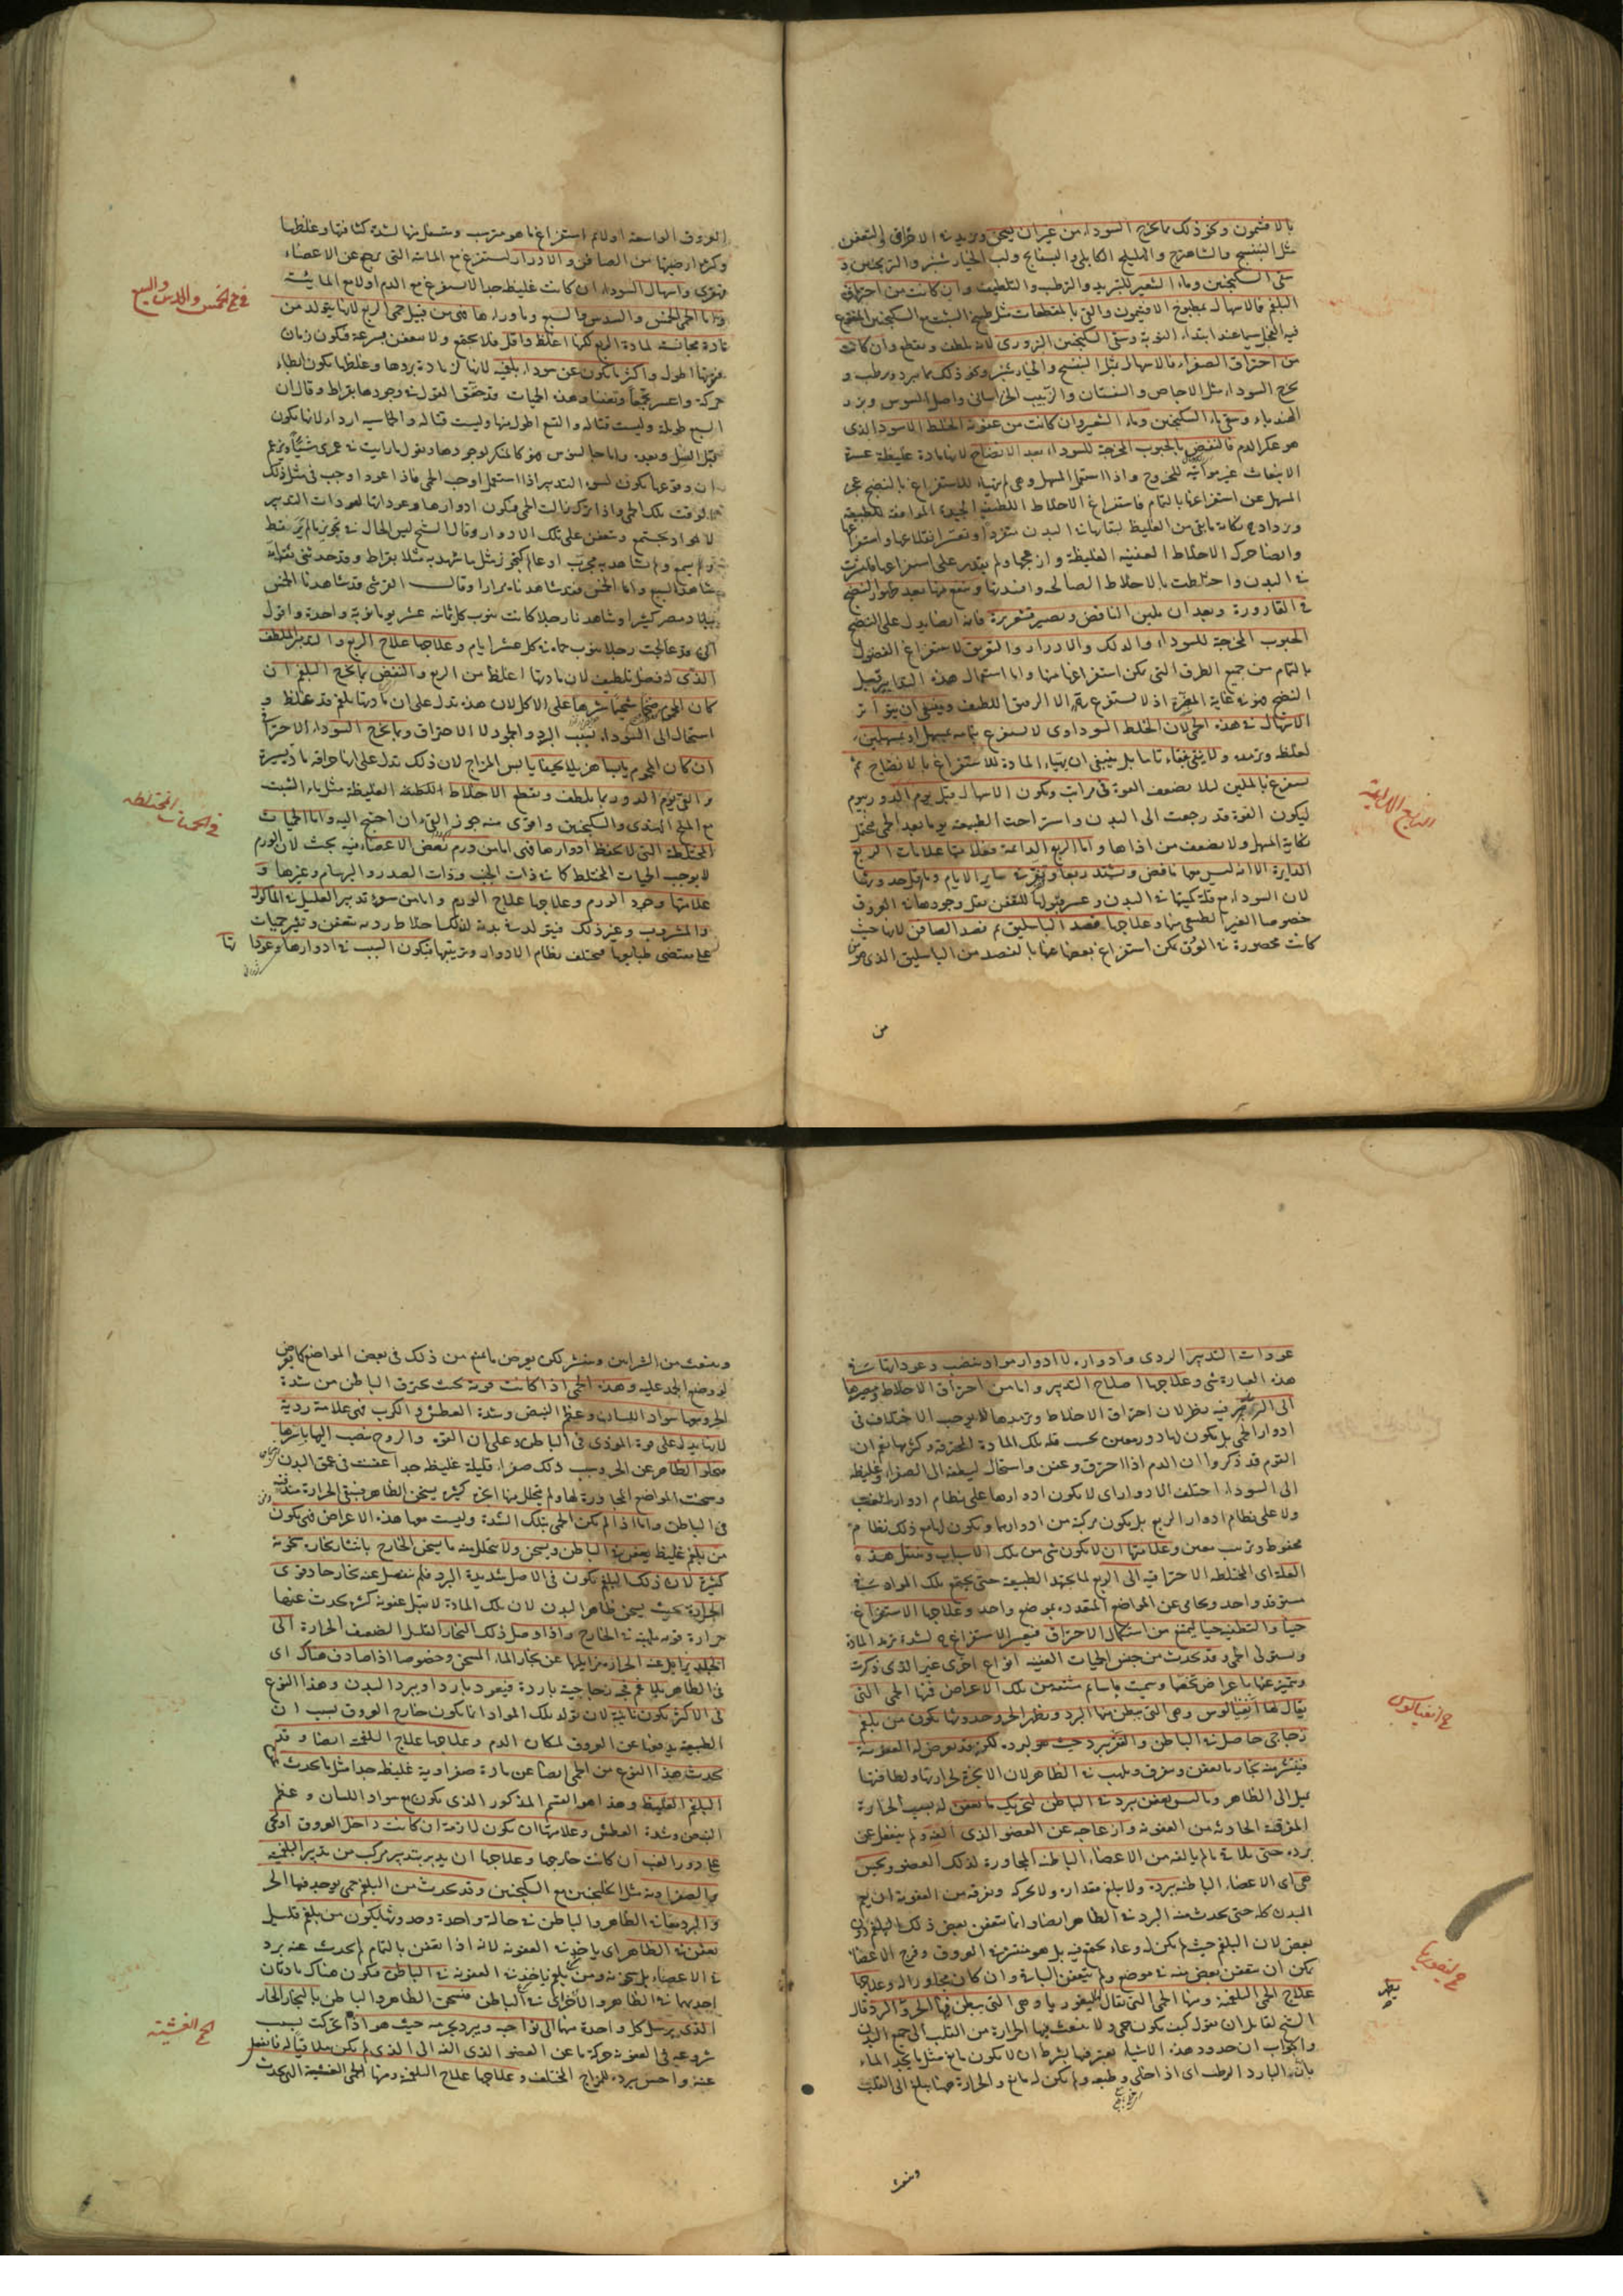 بالافتيمون ونحو ذلك مما يخرج السوداء من غير ان يسخن ويزيد في الاحراق والتعفن
مثل البنفسج والشاهترج والهليلج الكابلي والبسفايج ولب الخيار شنبر والترنجبين و
سقى السكنجبين وماء الشعير للتبريد والترطيب والتلطيف وان كانت من احتراق
البلغم فالاسهال بمطبوخ الافتيمون والقى بالمقطعات مثل طبيخ الشبت مع السكنجبين المنقوع
فيه الفجل سيما عند ابتداء النوبة وسقى السكنجبين البزورى لانه يلطف ويقطع وان كانت
من احتراق الصفراء فالاسهال بمثل البنفسج والخيار شنبر ونحو ذلك مما يبرد ويرطب و
يخرج السوداء مثل الاجاص والسفستان والزبيب الخراسانى واصل السوس وبزر
الهندباء وسقى ماء السكنجبين وماء الشعير وان كانت من عفونة الخلط الاسود الذى
هو عكر الدم فالنفض بالحبوب المخرجة للسوداء بعد الانضاج لانها مادة غليظة عسرة
الانبعاث غير مواتية للخروج واذا استعمل المسهل وهى لم تتهياء للاستفراغ بالنضج عجز
المسهل عن استفراغها بالتمام فاستفراغ الاخلاط اللطيفة الجيدة الموافقة للطبيعة
وايضا حرك الاخلاط العفنية الغليظة وازعجها ولم يقدر على استفراغها فانتشرت
فى البدن واختلطت بالاخلاط الصالحة وافسدتها
فى القارورة وبعد ان يلين النافض ويصير قشعريرة فانه ايضا يدل على النضج
الحبوب المخرجة للسوداء والدلك والادرار والتعريق لاستفراغ الفضول
بالتمام من جميع الطرق التى يمكن استفراغها منها واما استعمال هذه التدابير قبل
النضج فهو فى غاية المضرة اذ لا يستفرغ بهم الا الرقيق اللطيف وينبغى ان يتواتر
الاسهال فى هذه الحمى لان الخلط السوداوى لا يستفرغ بتمامه بمسهل او بمسهلين
لغلظه وتمدده ولا ينقى نقاء تاما بل ينبغى ان يتهياء المادة للاستفراغ بالانضاج ثم
يستفرغ بالملين لئلا يضعف القوة فى مرات ويكون الاسهال قبل يوم الدور بيوم
ليكون القوة قد رجعت الى البدن واستراحت الطبيعة يوما بعد الحمى فتحتمل
نكاية المسهل ولا يضعف من اذاها واما الربع الدائمة فعلامتها علامات الربع
الدايرة الا انه ليس معها نافض وتشتد ربعا وتفتر فى ساير الايام وما يقل حدوثها
لان السوداء مع قلة كميتها فى البدن وعسر قبولها للتعفن يقل وجودها فى العروق
خصوصا الغير الطبيعى منها وعلاجها فصد الباسليق ثم فصد الصافن لانها حيث
كانت محصورة فى العروق يمكن استفراغ بعضها عنها بالفصد من الباسليق الذى هو من
الربع الدائمة
من
العروق الواسعة اولا ثم استفراغ ما هو مترسب ومتسفل منها لشدة كثافتها وغلظها
وكثرة ارضيتها من الصافن والادرار ليستفرغ مع المائية التى ترجع عن الاعضاء
وتقوى واسهال السوداء ان كانت غليظة جدا لاستفرغ مع الدم اولا مع المائية
واما الحمى الخمس والسدس والسبع وما وراءها فهى من قبيل حمى الربع لانها يتولد من
مادة مجانسة لمادة الربع لكنها اغلظ واقل فلا يجتمع ولا يتعفن بسرعة فيكون زمان
نوبتها اطول واكثر ما يكون عن سوداء بلغمية لانها لزيادة بردها وغلظها يكون ابطاء
حركة واعسر تجمعا وتعفنا وهذه الحميات قد حقق القول فى وجودها بقراط وقال ان
السبع طويلة وليست قتالة والتسع اطول منها وليست قتالة والخامسة ارداء لانها يكون
قبل السل وبعده واما جالينوس فهو كالمنكر لوجودها ويقول ما رايت فى عمرى شيئا ويزعم
ان وقوعها يكون لسوء التدبير اذا استعمل اوجب الحمى فاذا اعود اوجب فى مثل ذلك
الوقت تلك الحمى واذا ترك زالت الحمى فيكون ادوارها وعوداتها لعودات التدبير
لا لمواد يجتمع ويتعفن على تلك الادوار وقال الشيخ ليس الحال فى تجويز ما لم ير فقط
ولم يسمع ولم يشاهد به مجرب او عالم كتجويز مثل ما شهد به مثل بقراط وقد حدثنى ثقة انه
شاهد السبع واما الخمس فقد شاهدناه مرارا وقال القرشى قد شاهدنا الخمس
ببلاد مصر كثيرا وشاهدنا رجلا كانت ينوب كل ثمانية عشر يوما نوبة واحدة واقول
انى قد عالجت رجلا ينوب حماه فى كل عشر ايام وعلاجها علاج الربع والتدبير الملطف
الذى له فضل تلطيف لان مادتها اغلظ من الربع والنفض بما يخرج البلغم ان
كان المحموم ضخما شحيما شرها على الاكل لان هذه تدل على ان مادتها بلغم قد غلظ و
استحال الى السوداء بسبب البرد والجمود لا الاحتراق وبما يخرج السوداء الاحتراقى
ان كان المحموم يابسا هزيلا نحيفا يابس المزاج لان ذلك تدل على انها حراقة مادة يسيرة
والقى يوم الدور بما يلطف ويقطع الاخلاط الغليظة مثل ماء الشبت
مع الملح الهندى والسكنجبين واقوى منه جوز القى ان احتيج اليه واما الحميات
المختلطة التى لا يحفظ ادوارها فهى اما من ورم بعض الاعضاء فيه بحث لان الورم
لا يوجب الحميات المختلطة كما فى ذات الجنب وذات الصدر والبرسام وغيرها و
علامتها وجود الورم وعلاجها علاج الورم واما من سوء تدبير العليل فى الماكول
والمشروب وغير ذلك فيتولد فى بدنه لذلك اخلاط ردية تتعفن وتثير حميات
على مقتضى طبايعها فيختلف نظام الادوار وترتيبها فيكون السبب فى ادوارها وعوداتها
فى حمى الخمس والسدس والسبع
فى الحميات المختلطة
عودات التدبير الردى وادواره لا ادوار مواد تنصب وعوداتها فى
هذه العبارة شى وعلاجها اصلاح التدبير واما من احتراق الاخلاط ومصيرها
الى الربع فيه نظر لان احتراق الاخلاط وترمدها لا يوجب الاختلاف فى
ادوار الحمى بل يكون لها دور معين بحسب قلة تلك المادة المحترقة وكثرتها نعم ان
القوم قد ذكروا ان الدم اذا احترق وعفن واستحال لطيفه الى الصفراء وغليظه
الى السوداء اختلف الادوار اى لا يكون ادوارها على نظام ادوار الغب
ولا على نظام ادوار الربع بل يكون مركبة من ادوارهما ويكون لها مع ذلك نظام
محفوظ وترتيب معين وعلامتها ان لا يكون شى من تلك الاسباب وينتقل هذه
العلة اى المختلطة الاحتراقية الى الربع لما يجتهد الطبيعة حتى يجتمع تلك المواد فى
مستوقد واحد ويحامى عن المواضع المتعددة بموضع واحد وعلاجها الاستفراغ
حينا والتطفية حينا ليمتنع من استكمال الاحتراق فيعسر الاستفراغ لشدة ترمد المادة
ويستولى الحمى وقد يحدث من جنس الحميات العفنية انواع اخرى غير الذى ذكرت
ويتميز عنها باعراض تخصها وسميت باسامى مشتقة من تلك الاعراض فمنها الحمى التى
يقال لها انفيالوس وهى التى يبطن فيها البرد ويظهر الحر وحدوثها يكون من بلغم
زجاجى حاصل فى الباطن والقعر يبرد حيث هو لبرده لكنه قد يعرض له العفونة
فينتشر منه بخار ما يعفن ويتفرق ويلهب فى الظاهر لان الابخرة لحرارتها ولطافتها
يميل الى الظاهر وما ليس يعفن يبرد فى الباطن لتحريك ما يعفن له بسبب الحرارة
المفرقة الحادثة من العفونة وازعاجه عن العضو الذى الفه ولم ينفعل عن
برده حتى يلاقى ما لم يالفه من الاعضاء الباطنة المجاورة لذلك العضو ويحس
هى اى الاعضاء الباطنة ببرده ولا يبلغ مقداره ولا تحركه وتفرقه من العفونة ان يعم
البدن كله حتى يحدث منه البرد فى الظاهر ايضا وانما يتعفن بعض ذلك البلغم دون
بعض لان البلغم حيث لم يكن له وعاء يجتمع فيه بل هو منتشر فى العروق وفرج الاعضاء
يمكن ان يتعفن بعض منه فى موضع ولم يتعفن الباقى وان كان مجاورا له وعلاجها
علاج الحمى البلغمية ومنها الحمى التى يقال لها ليفوريا وهى التى يبطن فيها الحر والبرد قال
الشيخ لقائل ان يقول كيف يكون حمى ولا ينبعث فيها الحرارة من القلب الى جميع البدن
والجواب ان حدود هذه الاشياء يعتبر فيها بشرط ان لا يكون مانع مثل ما يحد الماء
بانه البارد الرطب اى اذا خلى وطبعه ولم يكن له مانع والحرارة هنا يبلغ الى القلب
حمى انفيالوس
حمى ليفوريا
وينبعث
وينبعث من الشرايين وينتشر لكن يعرض ما يمنع من ذلك فى بعض المواضع كما يعرض
لو وضع الجمد عليه وهذه الحمى اذا كانت قوية بحيث يحترق الباطن من شدة
الحر ومعها سواد اللسان وعظم النبض وشدة العطش والكرب فهى علامة ردية
لانها يدل على قوة الموذى فى الباطن وعلى ان القوة والروح ينصب اليها باسرها
فيخلو الظاهر عن الحر وسبب ذلك صفراء قليلة غليظة جدا عفنت فى عمق البدن
وسخنت المواضع المجاورة لها ولم يتحلل منها ابخرة كثيرة يسخن الظاهر فيبقى الحرارة
فى الباطن واما اذا لم يكن الحمى بتلك الشدة وليست معها هذه الاعراض فهى يكون
من بلغم غليظ يعفن فى الباطن ويسخن ولا يتحلل منه ما يسخن الخارج بانتشار بخاره سخونة
كثيرة لان ذلك البلغم يكون فى الاصل شديدة البرد فلم ينفصل عنه بخار حاد قوى
الحرارة بحيث يسخن ظاهر البدن لان تلك المادة لا يقبل عفونة كثيرة يحدث عنها
حرارة قوية ملهبة فى الخارج واذا وصل ذلك البخار القليل الضعيف الحرارة الى
الجلد يزايل عنه الحرارة مزايلتها عن بخار الماء المسخن وخصوصا اذا صادف هناك اى
فى الظاهر بلاغم فجة زجاجية باردة فيعود باردا ويبرد البدن وهذا النوع
فى الاكثر يكون نائبة لان تولد تلك المواد انما يكون خارج العروق بسبب ان
الطبيعة يدفعها عن العروق لمكان الدم وعلاجها علاج البلغمية ايضا وقد
يحدث هذا النوع من الحمى ايضا عن مادة صفراوية غليظة جدا مثل ما يحدث عن
البلغم الغليظ وهذا هو القسم المذكور الذى يكون مع سواد اللسان وعظم
النبض وشدة العطش وعلامتها ان يكون لازمة ان كانت داخل العروق او يجى
على دور الغب ان كانت خارجها وعلاجها ان يدبر بتدبير مركب من تدبير البلغمية
والصفراوية مثل الجلنجبين مع السكنجبين وقد يحدث من البلغم حمى يوجد فيها الحر
والبرد معا فى الظاهر والباطن فى حالة واحدة وحدوثها يكون من بلغم قليل
يعفن فى الظاهر اى ياخذ فى العفونة لانه اذا تعفن بالتمام لم يحدث عنه برد
فى الاعضاء بل سخونة ومن بلغم ياخذ فى العفونة فى الباطن فيكون هناك مادتان
احديهما فى الظاهر والاخرى فى الباطن فيسخن الظاهر والباطن بالبخار الحار
الذى يرسل كل واحدة منها الى نواحيه ويبرد بجرمه حيث هو اذا تحركت بسبب
شروعه فى العفونة حركة ما عن العضو الذى الفه الى الذى لم يكن ملاقيا له فانفعل
عنه واحس ببرده للمزاج المختلف وعلاجها علاج البلغمية ومنها الحمى الغشية التى يحدث
الحمى الغشية